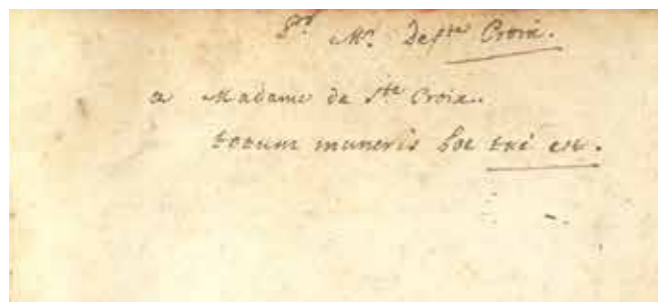 Mr. De Ste Croix.
a Madame de Ste Croix.
totum muneris hoc tui est.